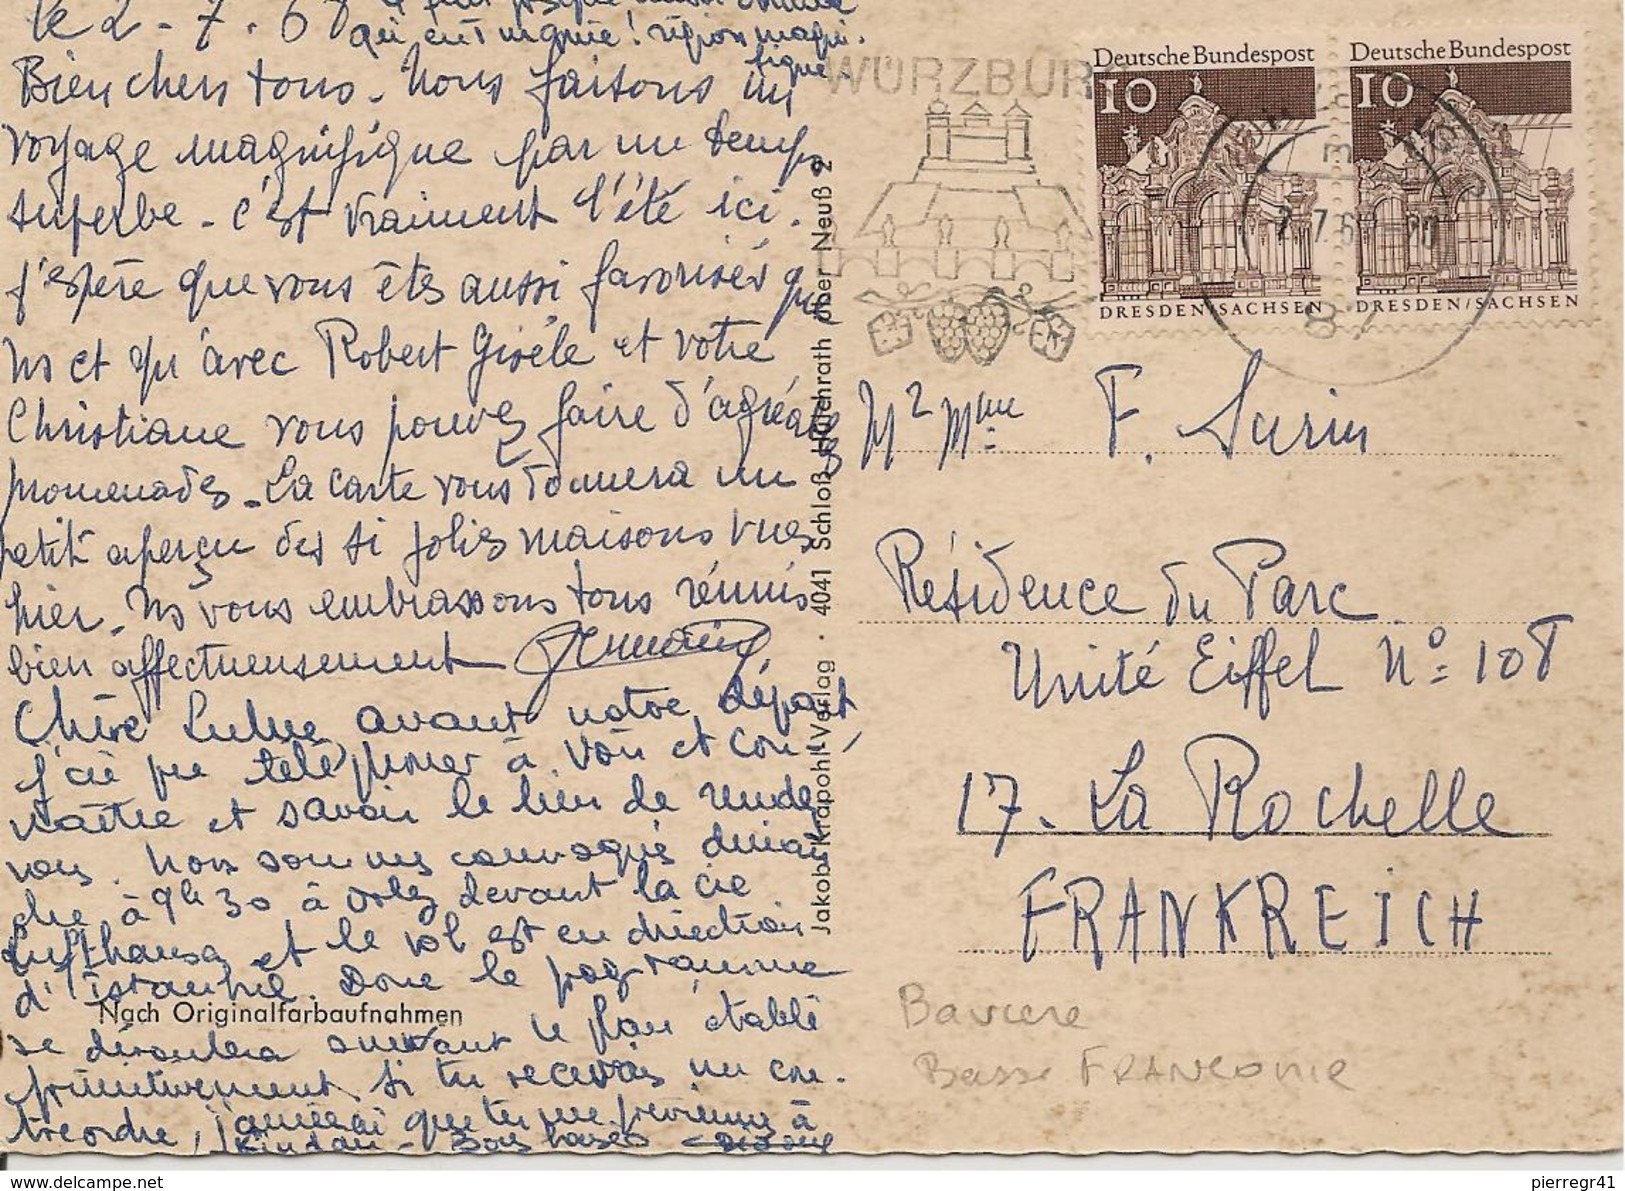 le 2-7-68
qui est magnée! région magni-
fique.
Bien chers tous. Nous faisons un
voyage magnifique par un temps
superbe - c'est vraiment l'été ici.
J'espère que vous êtes aussi favorisés que
ns et qu'avec Robert Gisèle et votre
Christiane vous pouvez faire d'agréables
promenades. La carte vous donnera un
petit aperçu des si jolies maisons vues
hier. Ns vous embrassons tous réunis
bien affectueusement Germaine
Chère Lulue, avant notre départ
j'ai pu téléphoner à et con-
naître et savoir le lieu de rendez
vous. Nous sommes convoqués diman
che à 9h30 à Orly devant la cie
Lufthansa et le vol est en direction
d'Istanbul. Donc le programme
se déroulera suivant le plan établi
primitivement. Si tu recevais un con-
treordre, j'aimerai que tu me préviennes à
Lindau - Bons baisers
Nach Originalfarbaufnahmen
Jakob Krapohl-Verlag · 4041 Schloß Hülchrath über Neuß 2
WÜRZBURG
Deutsche Bundespost
10
DRESDEN/SACHSEN
Deutsche Bundespost
10
DRESDEN/SACHSEN
2.7.6 -20
M2 Mme F. Surin
Résidence du Parc
Unité Eiffel No 108
17. La Rochelle
FRANKREICH
Baviere
Basse FRANCONIE
www.delcampe.net
pierregr41